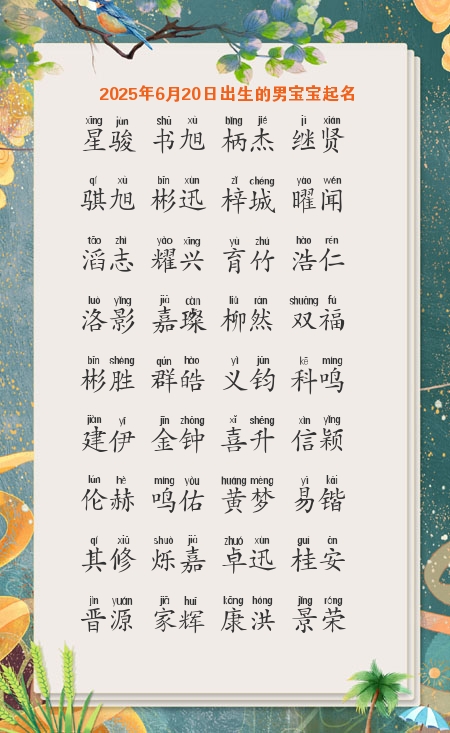 2025年6月20日出生的男宝宝起名
xīng jùn shū xù bǐng jié jì xián
星骏 书旭 柄杰 继贤
qí xù bīn xùn zǐ chéng yào wén
骐旭 彬迅 梓城 曜闻
tāo zhì yào xīng yù zhú hào rén
滔志 耀兴 育竹 浩仁
luò yǐng jiā càn liǔ rán shuāng fú
洛影 嘉璨 柳然 双福
bīn shèng qún hào yì jūn kē míng
彬胜 群皓 义钧 科鸣
jiàn yī jīn zhōng xǐ shēng xìn yǐng
建伊 金钟 喜升 信颖
lún hè míng yòu huáng mèng yì kǎi
伦赫 鸣佑 黄梦 易锴
qí xiū shuò jiā zhuó xùn guì ān
其修 烁嘉 卓迅 桂安
jìn yuán jiā huī kāng hóng jǐng róng
晋源 家辉 康洪 景荣